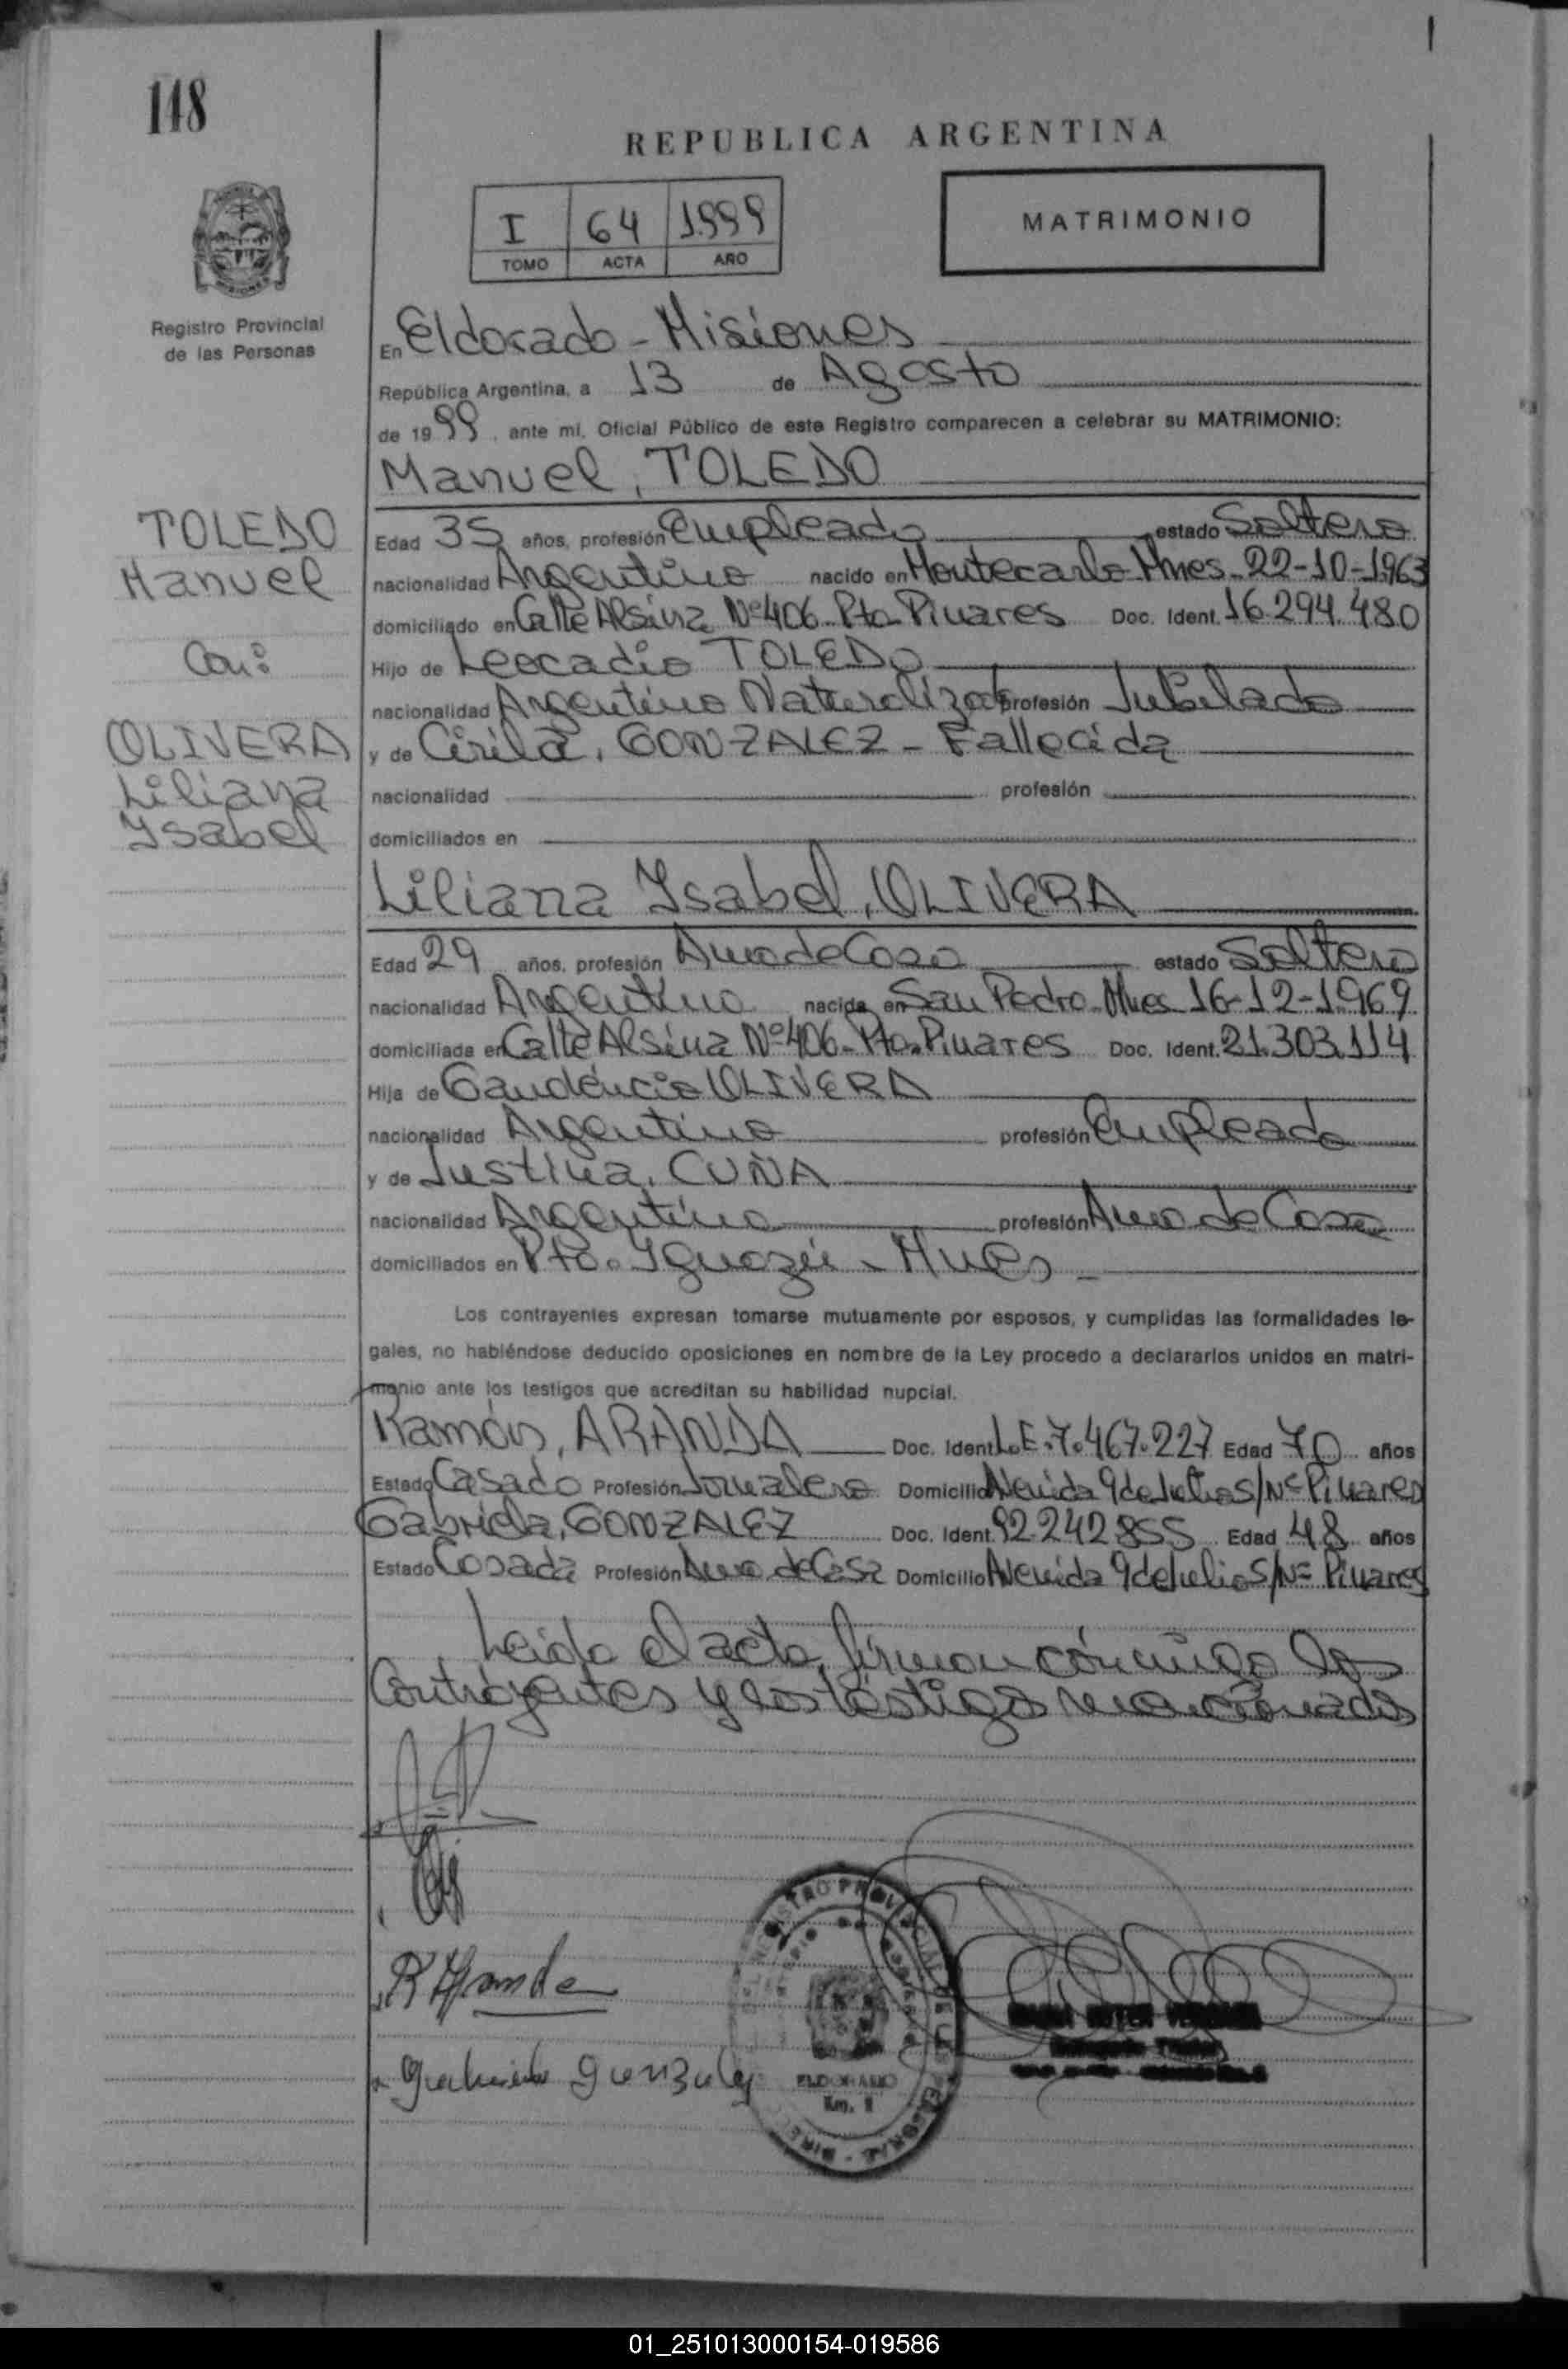 148
REPUBLICA ARGENTINA
I 64 1.999
TOMO ACTA AÑO
MATRIMONIO
Registro Provincial
de las Personas
En Eldorado - Misiones
República Argentina, a 13 de Agosto
de 1999, ante mí, Oficial Público de este Registro comparecen a celebrar su MATRIMONIO:
Manuel, TOLEDO
TOLEDO
Manuel
Con:
OLIVERA
Liliana
Ysabel
Edad 35 años, profesión Empleado estado Soltero
nacionalidad Argentino nacido en Montecarlo Mnes - 22-10-1.963
domiciliado en Calle Alsina Nº 406 - Pto. Pinares Doc. Ident. 16.294.480
Hijo de Leocadio TOLEDO
nacionalidad Argentino Naturalizado profesión Jubilado
y de Cirila, GONZALEZ - Fallecida
nacionalidad profesión
domiciliados en
Liliana Ysabel, OLIVERA
Edad 29 años, profesión Ama de Casa estado Soltera
nacionalidad Argentina nacida en San Pedro - Mnes 16-12-1.969
domiciliada en Calle Alsina Nº 406 - Pto. Pinares Doc. Ident. 21.303.114
Hija de Gaudencio OLIVERA
nacionalidad Argentino profesión Empleado
y de Justina, CUÑA
nacionalidad Argentina profesión Ama de Casa
domiciliados en Pto. Yguazú - Mnes
Los contrayentes expresan tomarse mutuamente por esposos, y cumplidas las formalidades le-
gales, no habiéndose deducido oposiciones en nombre de la Ley procedo a declararlos unidos en matri-
monio ante los testigos que acreditan su habilidad nupcial.
Ramón, ARANDA Doc. Ident. L.E. 7.467.227 Edad 70 años
Estado Casado Profesión Jornalero Domicilio Avenida 9 de Julio S/Nº Pinares
Gabriela, GONZALEZ Doc. Ident. 92.242.855 Edad 48 años
Estado Casada Profesión Ama de Casa Domicilio Avenida 9 de Julio S/Nº Pinares
Leída el acta, firman conmigo los
Contrayentes y los testigos mencionados
R Aranda
gabriela gonzalez
ELDORADO
01_251013000154-019586